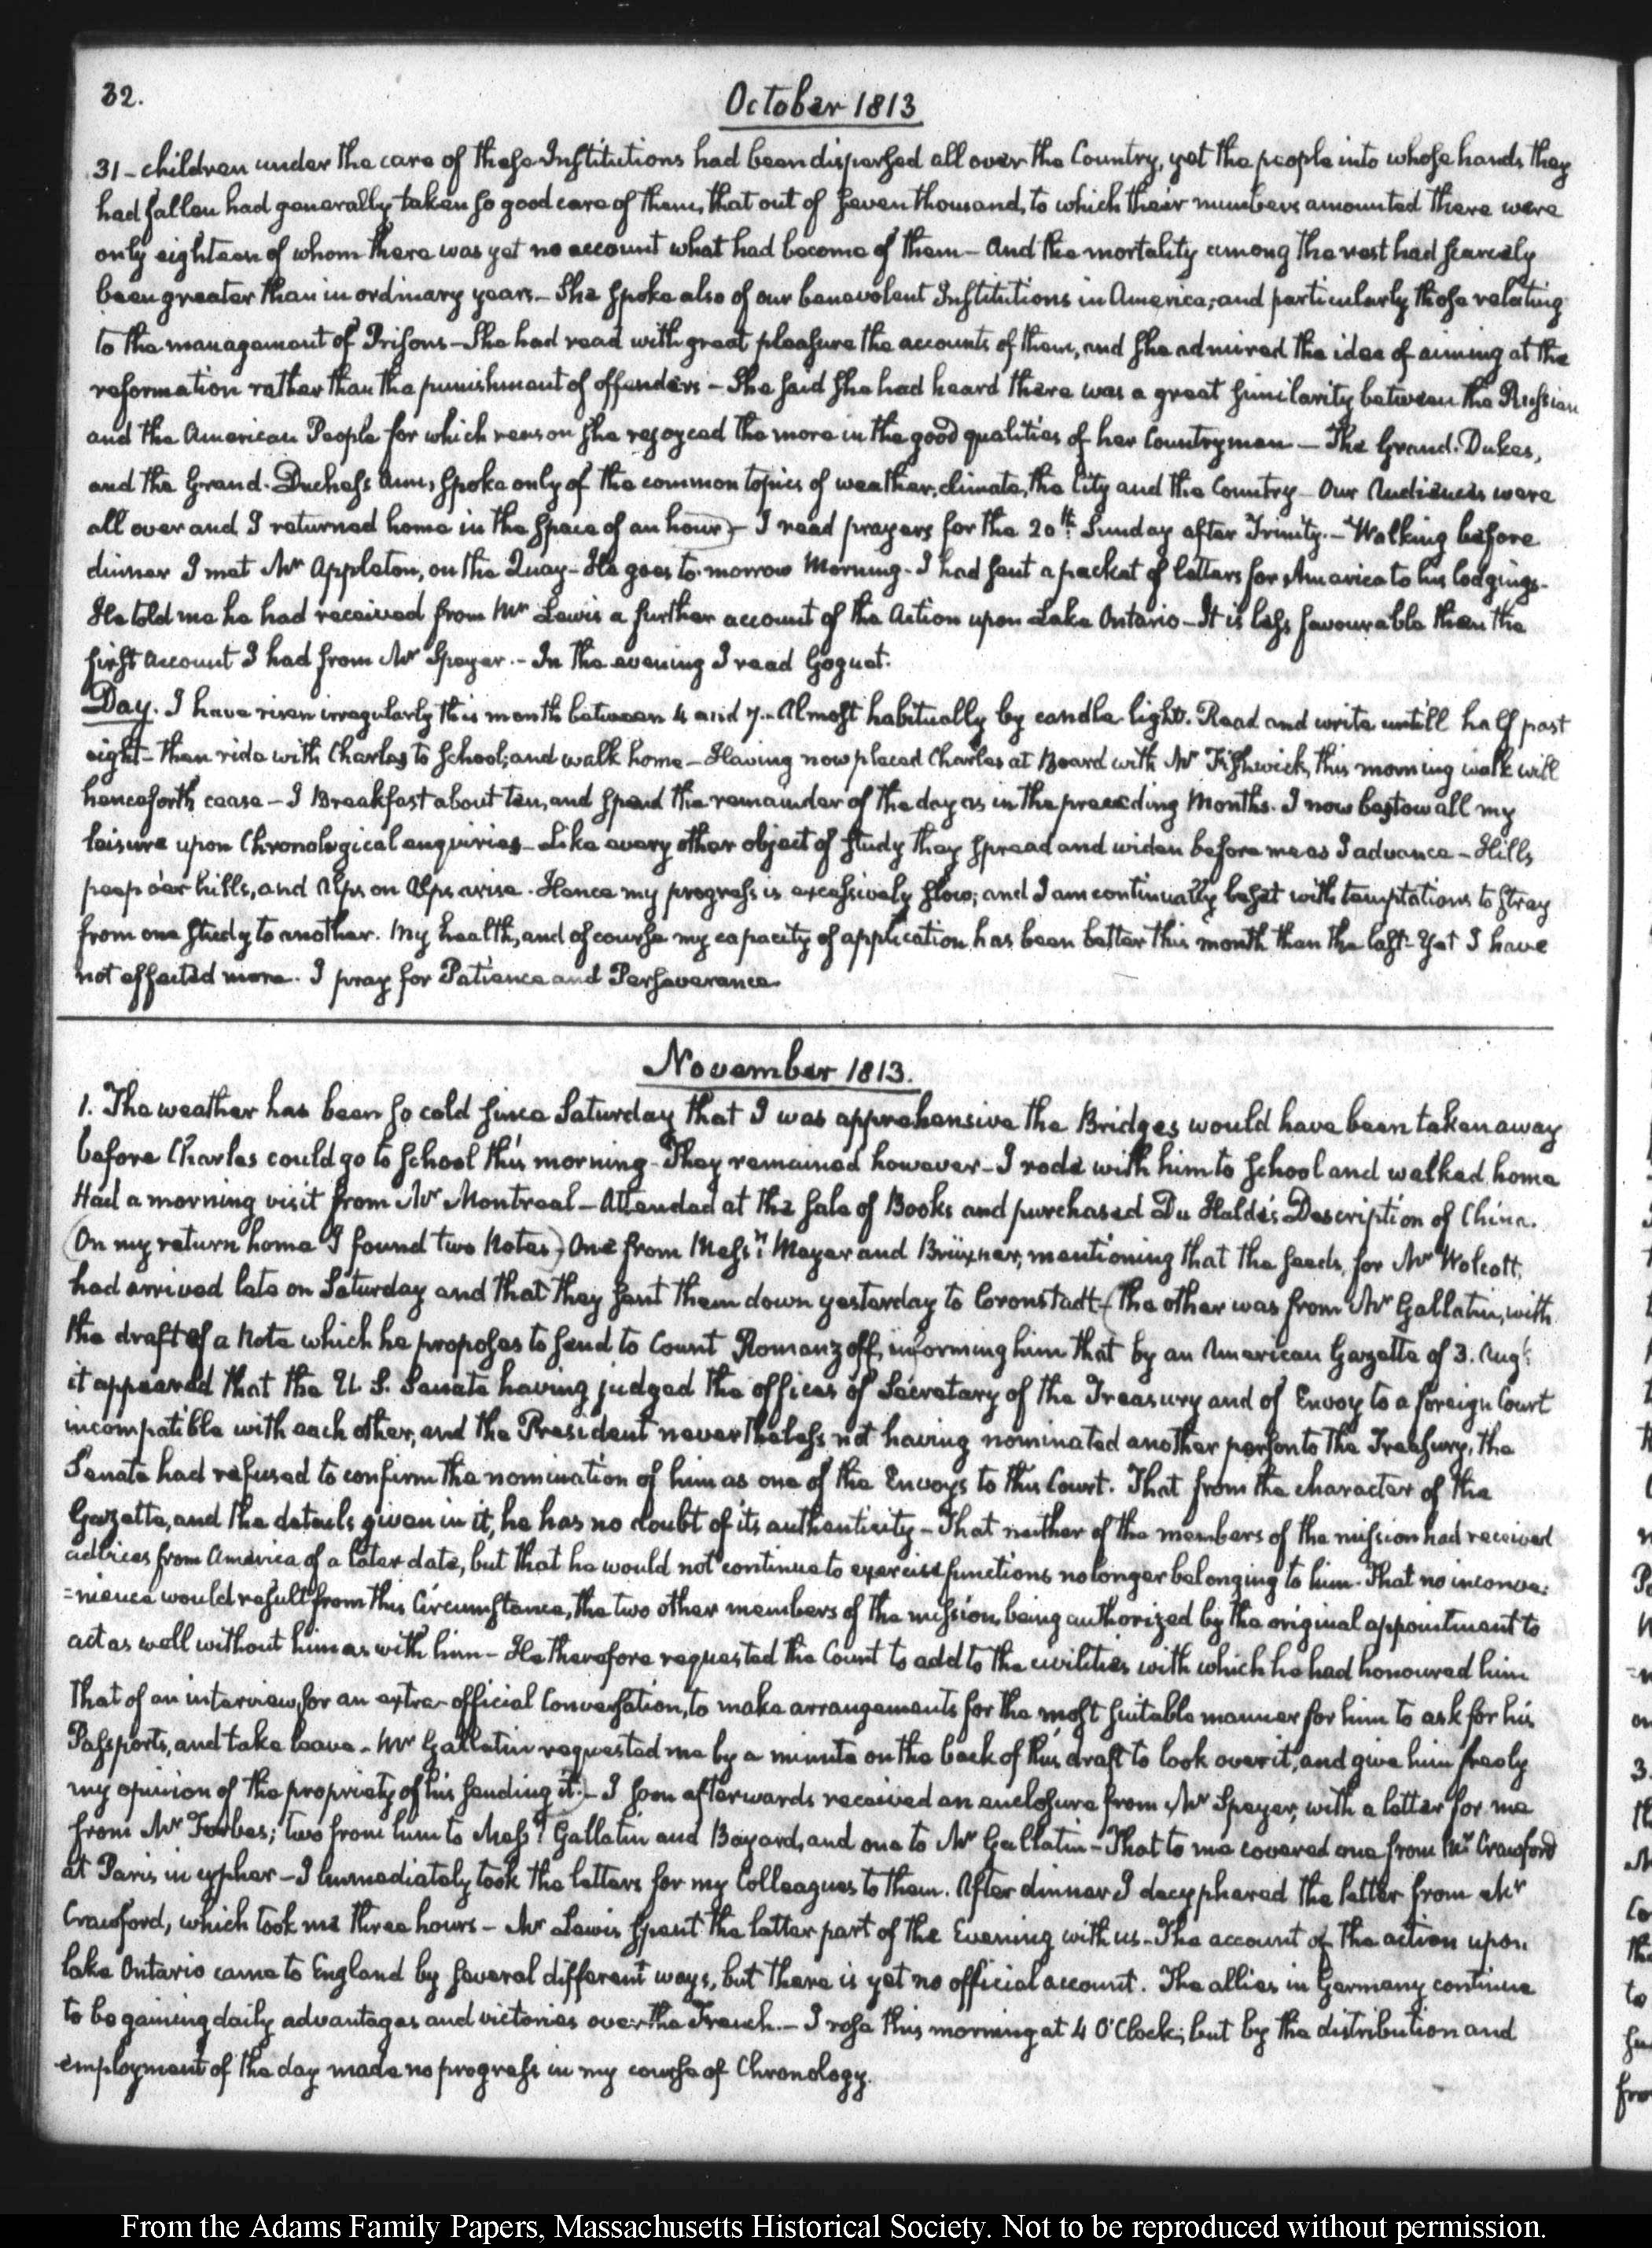 32.
October 1813
31 - children under the care of these Institutions had been dispersed all over the Country, yet the people into whose hands they
had fallen had generally taken so good care of them, that out of seven thousand, to which their numbers amounted there were
only eighteen of whom there was yet no account what had become of them - And the mortality among the rest had scarcely
been greater than in ordinary years - She spoke also of our benevolent Institutions in America, and particularly those relating
to the management of Prisons - She had read with great pleasure the accounts of them, and she admired the idea of aiming at the
reformation rather than the punishment of offenders - She said she had heard there was a great similarity between the Russian
and the American People for which reason she rejoyced the more in the good qualities of her Countrymen - The Grand-Dukes,
and the Grand-Duchess Ann, spoke only of the common topics of weather, climate, the City and the Country - Our Audiences were
all over and I returned home in the space of an hour) - I read prayers for the 20th. Sunday after Trinity. - Walking before
dinner I met Mr Appleton, on the Quay - He goes to-morrow Morning - I had sent a packet of letters for America to his lodgings -
He told me he had received from Mr Lewis a further account of the Action upon Lake Ontario - It is less favourable than the
first Account I had from Mr Speyer. - In the evening I read Goguet.
Day. I have risen irregularly this month between 4 and 7 - Almost habitually by candle light. Read and write untill half past
eight - then ride with Charles to School; and walk home - Having now placed Charles at Board with Mr Fishwick, this morning walk will
henceforth cease - I Breakfast about ten, and spend the remainder of the day as in the preceding Months. I now bestow all my
leisure upon Chronological enquiries - Like every other object of study they spread and widen before me as I advance - Hills
peep o'er hills, and Alps on Alps arise. Hence my progress is excessively slow; and I am continually beset with temptations to stray
from one study to another. My health, and of course my capacity of application has been better this month than the last - Yet I have
not effected more. I pray for Patience and Perseverance.
November 1813.
1. The weather has been so cold since Saturday that I was apprehensive the Bridges would have been taken away
before Charles could go to school this morning - They remained however - I rode with him to school and walked home
Had a morning visit from Mr Montreal - Attended at the sale of Books and purchased Du Halde's Description of China.
(On my return home I found two Notes) One from Messrs: Meyer and Brüxner, mentioning that the seeds, for Mr Wolcott,
had arrived late on Saturday and that they sent them down yesterday to Cronstadt - (the other was from Mr Gallatin, with
the draft of a Note which he proposes to send to Count Romanzoff, informing him that by an American Gazette of 3. Augt:
it appeared that the U. S. Senate having judged the offices of Secretary of the Treasury and of Envoy to a foreign Court
incompatible with each other, and the President nevertheless not having nominated another person to the Treasury, the
Senate had refused to confirm the nomination of him as one of the Envoys to this Court. That from the character of the
Gazette, and the details given in it, he has no doubt of its authenticity - That neither of the members of the mission had received
advices from America of a later date, but that he would not continue to exercise functions no longer belonging to him. That no inconve=
=nience would result from this Circumstance, the two other members of the mission, being authorized by the original appointment to
act as well without him as with him - He therefore requested the Count to add to the civilities with which he had honoured him
that of an interview, for an extra-official Conversation, to make arrangements for the most suitable manner for him to ask for his
Passports, and take leave - Mr Gallatin requested me by a minute on the back of this draft to look over it, and give him freely
my opinion of the propriety of his sending it.) - I soon afterwards received an enclosure from Mr Speyer, with a letter for me
from Mr Forbes; two from him to Messrs Gallatin and Bayard, and one to Mr Gallatin - That to me covered one from Mr Crawford
at Paris in cypher - I immediately took the letters for my Colleagues to them. After dinner I decyphered the letter from Mr
Crawford, which took me three hours - Mr Lewis spent the latter part of the Evening with us - The account of the action upon
lake Ontario came to England by several different ways, but there is yet no official account. The allies in Germany continue
to be gaining daily advantages and victories over the French. - I rose this morning at 4 O'Clock; but by the distribution and
employment of the day made no progress in my course of Chronology.
From the Adams Family Papers, Massachusetts Historical Society. Not to be reproduced without permission.